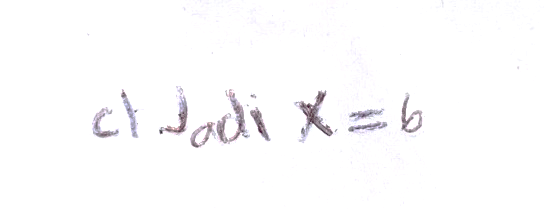 c) Jadi X = 6